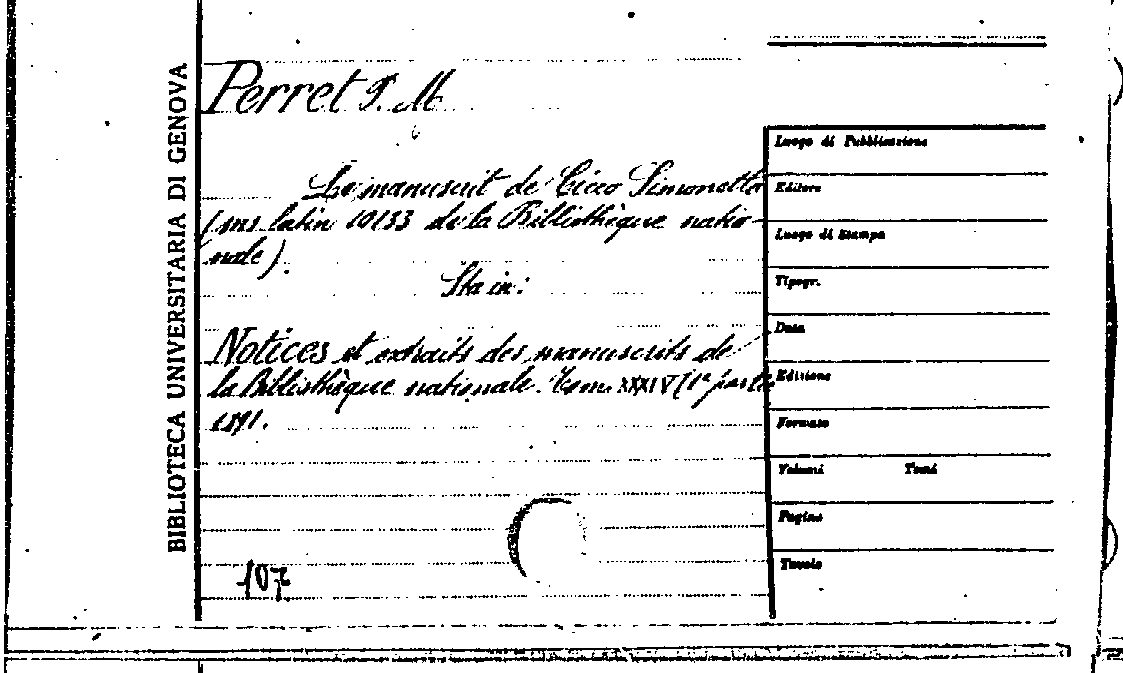 BIBLIOTECA UNIVERSITARIA DI GENOVA
Perret P. M.
Le manuscrit de Cicco Simonetta
(ms latin 10133 de la Bibliothèque natio-
nale).
Sta in:
Notices et extraits des manuscrits de
la Bibliothèque nationale. Tom. XXXIV (1e partie
1891.
107
Luogo di Pubblicazione
Editore
Luogo di Stampa
Tipogr.
Data
Edizione
Formato
Volumi Tomi
Pagine
Tavole